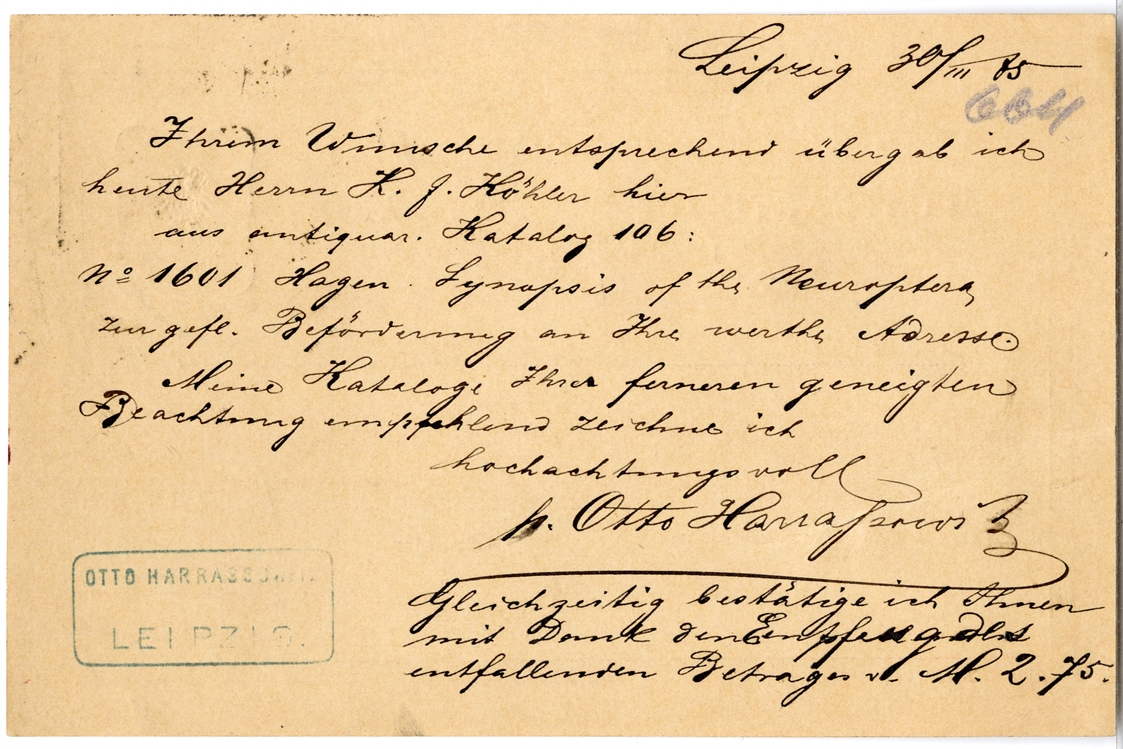 Leipzig 30/III 85
664
Ihrem Wunsche entsprechend übergab ich
heute Herrn K. F. Köhler hier
aus antiquar. Katalog 106:
No 1601 Hagen. Synopsis of the Neuroptera
zur gefl. Beförderung an Ihre werthe Adresse.
Meine Kataloge Ihrer ferneren geneigten
Beachtung empfehlend zeichne ich
hochachtungsvoll
p. Otto Harrassowitz
Gleichzeitig bestätige ich Ihnen
mit Dank den Empfang des
entfallenden Betrages v. M. 2.75.
OTTO HARRASSOWITZ
LEIPZIG.